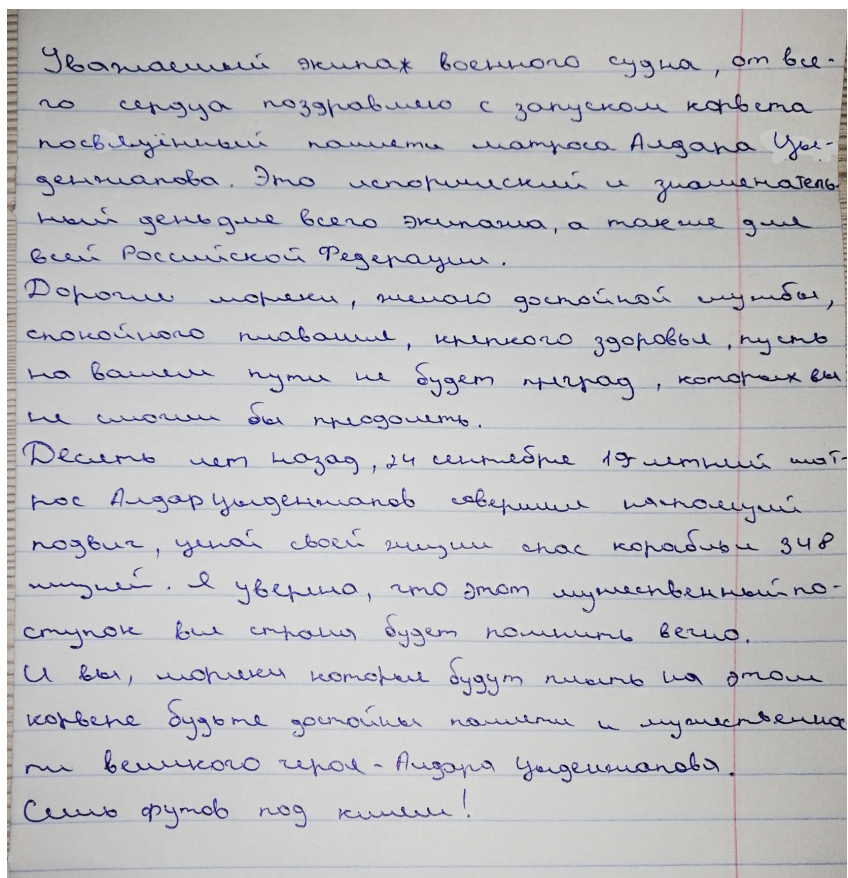 Уважаемый экипаж военного судна, от все-
го сердца поздравляю с запуском корвета
посвящённый памяти матроса Алдара Цы-
денжапова. Это исторический и знаменатель-
ный день для всего экипажа, а также для
всей Российской Федерации.
Дорогие моряки, желаю достойной службы,
спокойного плавания, крепкого здоровья, пусть
на вашем пути не будет преград, которых вы
не смогли бы преодолеть.
Десять лет назад, 24 сентября 19-летний мат-
рос Алдар Цыденжапов совершил настоящий
подвиг, ценой своей жизни спас корабль и 348
жизней. Я уверена, что этот мужественный по-
ступок вся страна будет помнить вечно.
И вы, моряки которые будут плыть на этом
корвете будьте достойны памяти и мужественнос
ти великого героя - Алдара Цыденжапова.
Семь футов под килем!